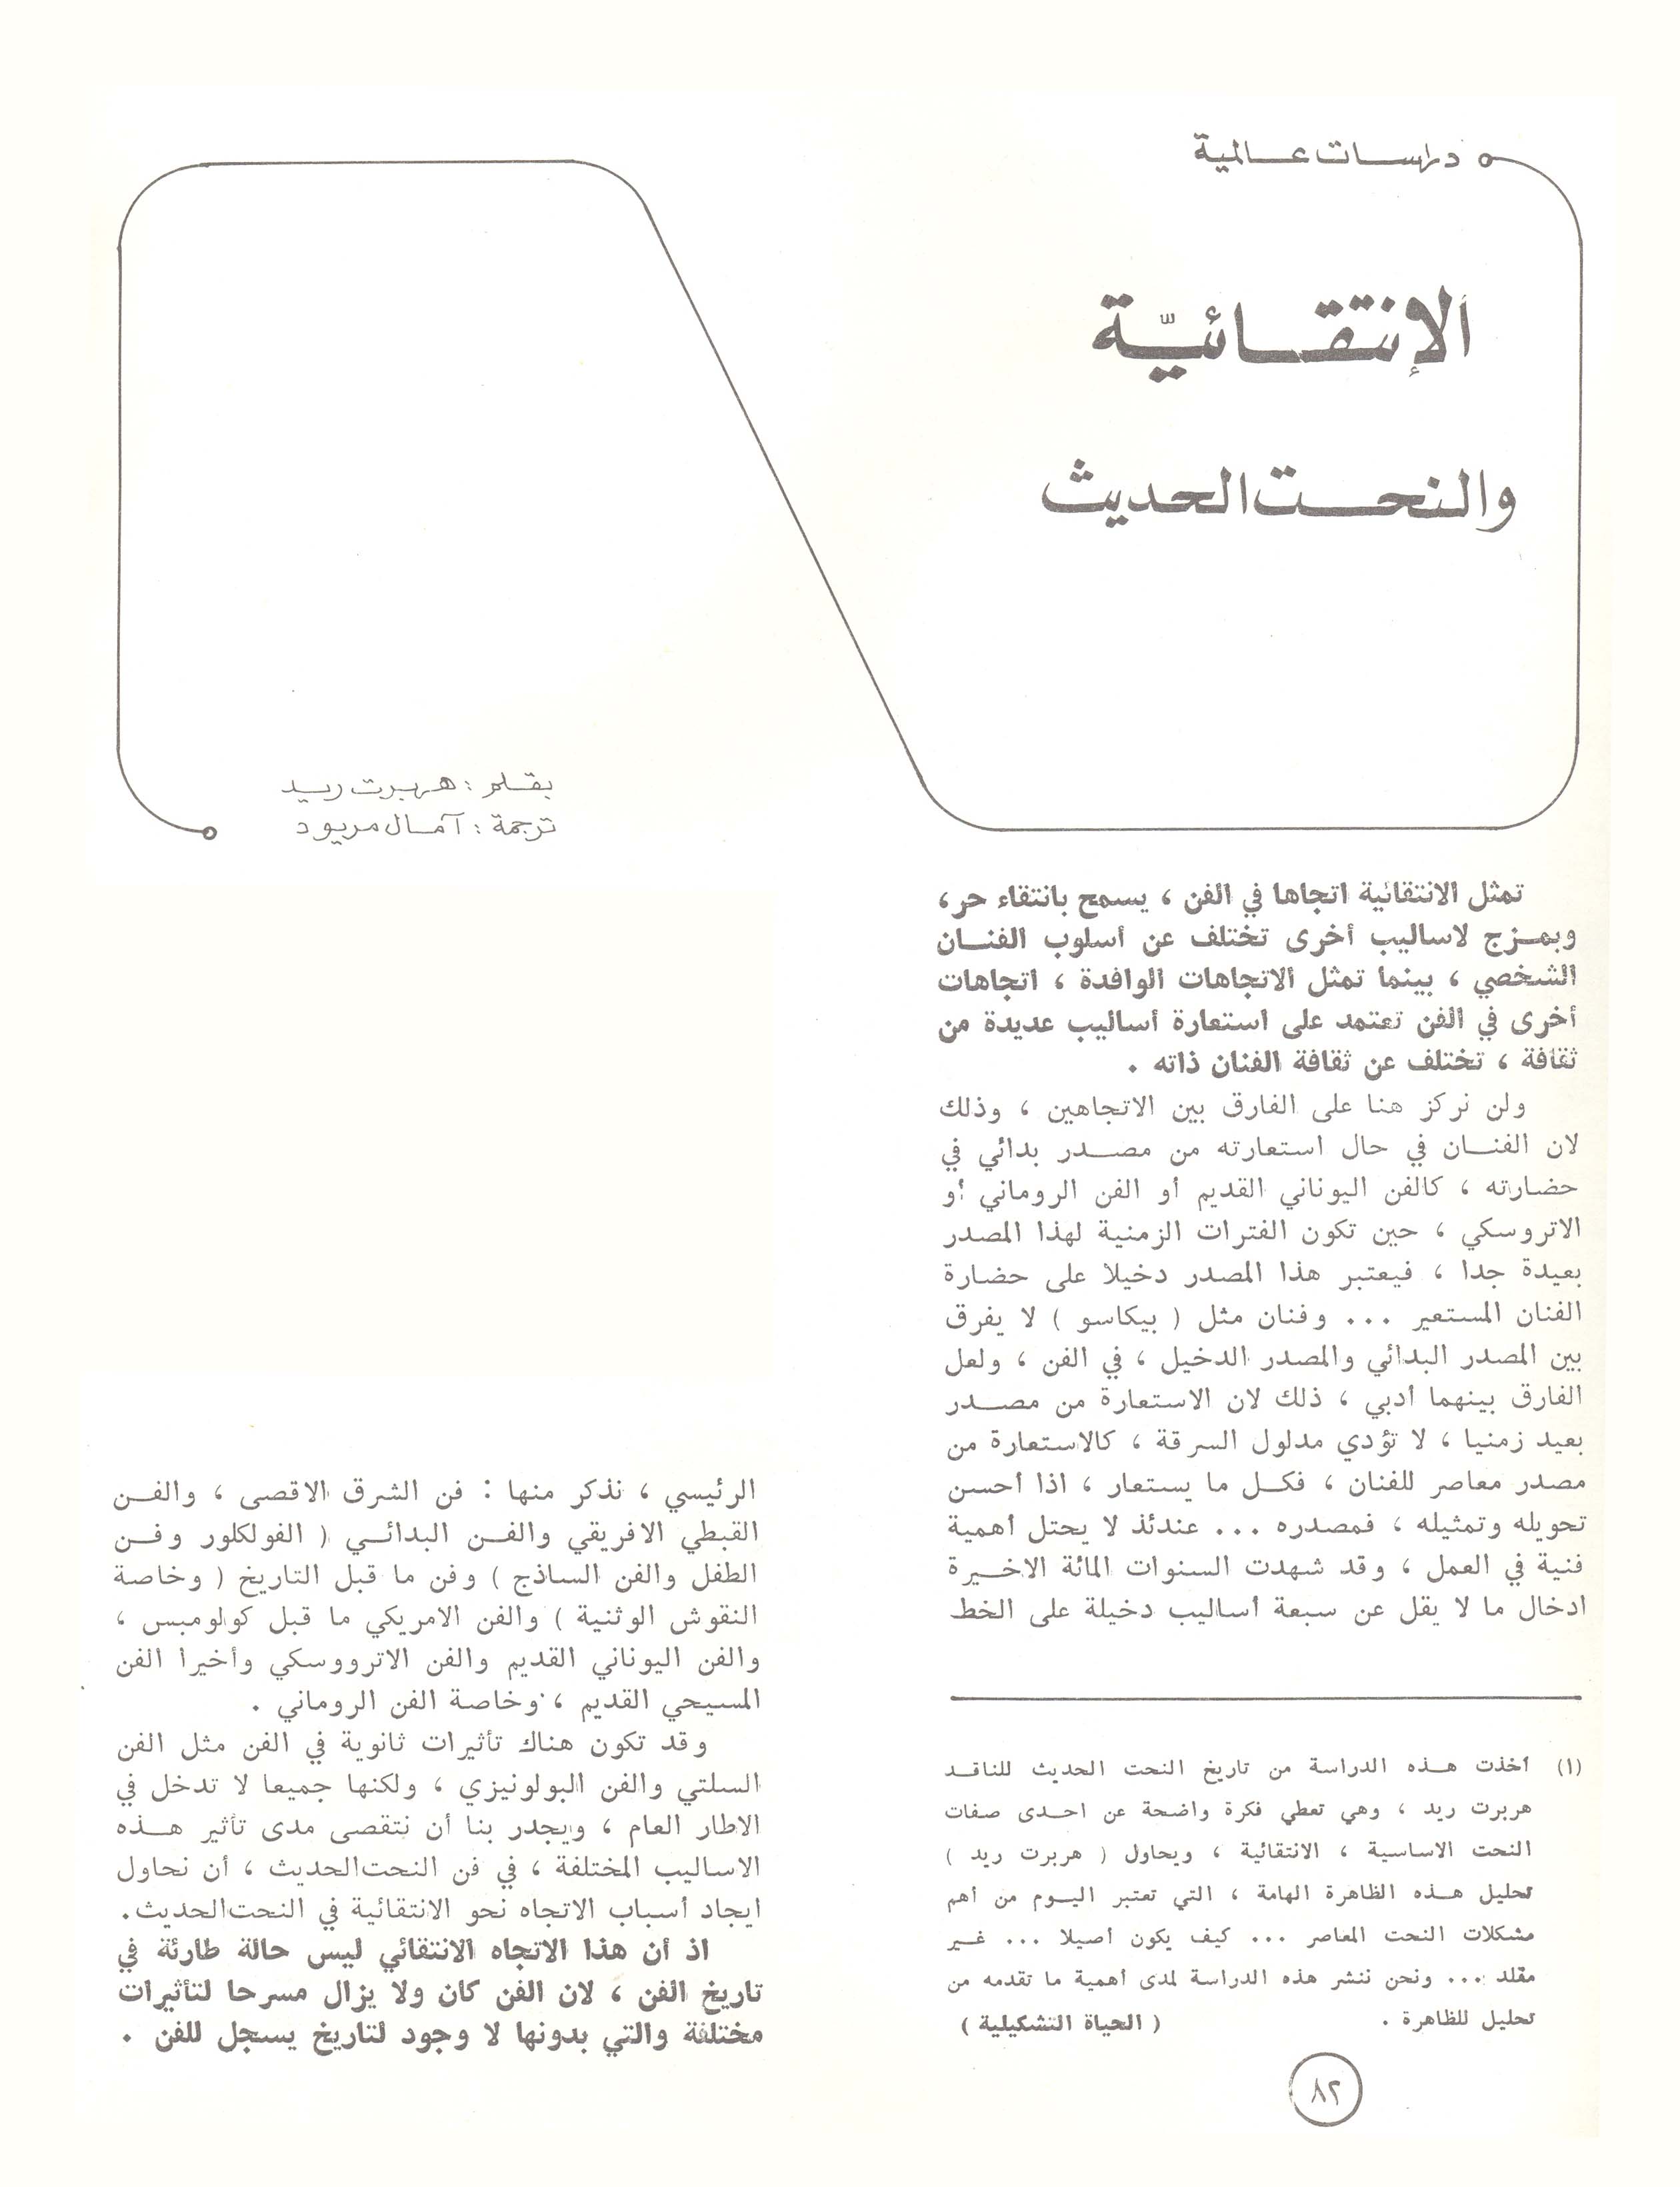 دراسات عالمية
الإنتقائيّة
والنحت الحديث
بقلم : هربرت ريد
ترجمة : آمال مريود
تمثل الانتقائية اتجاها في الفن ، يسمح بانتقاء حر ،
وبمزج لاساليب أخرى تختلف عن أسلوب الفنان
الشخصي ، بينما تمثل الاتجاهات الوافدة ، اتجاهات
أخرى في الفن تعتمد على استعارة أساليب عديدة من
ثقافة ، تختلف عن ثقافة الفنان ذاته .
ولن نركز هنا على الفارق بين الاتجاهين ، وذلك
لان الفنان في حال استعارته من مصدر بدائي في
حضارته ، كالفن اليوناني القديم أو الفن الروماني أو
الاتروسكي ، حين تكون الفترات الزمنية لهذا المصدر
بعيدة جدا ، فيعتبر هذا المصدر دخيلا على حضارة
الفنان المستعير ... وفنان مثل ( بيكاسو ) لا يفرق
بين المصدر البدائي والمصدر الدخيل ، في الفن ، ولعل
الفارق بينهما أدبي ، ذلك لان الاستعارة من مصدر
بعيد زمنيا ، لا تؤدي مدلول السرقة ، كالاستعارة من
مصدر معاصر للفنان ، فكل ما يستعار ، اذا أحسن
تحويله وتمثيله ، فمصدره ... عندئذ لا يحتل أهمية
فنية في العمل ، وقد شهدت السنوات المائة الاخيرة
ادخال ما لا يقل عن سبعة أساليب دخيلة على الخط
(١) أخذت هذه الدراسة من تاريخ النحت الحديث للناقد
هربرت ريد ، وهي تعطي فكرة واضحة عن احدى صفات
النحت الاساسية ، الانتقائية ، ويحاول ( هربرت ريد )
تحليل هذه الظاهرة الهامة ، التي تعتبر اليوم من أهم
مشكلات النحت المعاصر ... كيف يكون أصيلا ... غير
مقلد ... ونحن ننشر هذه الدراسة لمدى أهمية ما تقدمه من
تحليل للظاهرة . ( الحياة التشكيلية )
الرئيسي ، نذكر منها : فن الشرق الاقصى ، والفن
القبطي الافريقي والفن البدائي ( الفولكلور وفن
الطفل والفن الساذج ) وفن ما قبل التاريخ ( وخاصة
النقوش الوثنية ) والفن الامريكي ما قبل كولومبس ،
والفن اليوناني القديم والفن الاترووسكي وأخيرا الفن
المسيحي القديم ، وخاصة الفن الروماني .
وقد تكون هناك تأثيرات ثانوية في الفن مثل الفن
السلتي والفن البولونيزي ، ولكنها جميعا لا تدخل في
الاطار العام ، ويجدر بنا أن نتقصى مدى تأثير هذه
الاساليب المختلفة ، في فن النحت الحديث ، أن نحاول
ايجاد أسباب الاتجاه نحو الانتقائية في النحت الحديث .
اذ أن هذا الاتجاه الانتقائي ليس حالة طارئة في
تاريخ الفن ، لان الفن كان ولا يزال مسرحا لتأثيرات
مختلفة والتي بدونها لا وجود لتاريخ يسجل للفن .
٨٢